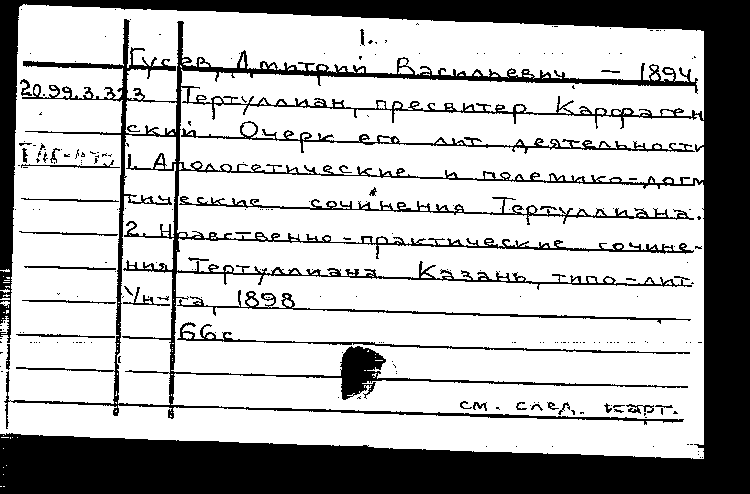 1.
Гусев, Дмитрий Васильевич, – 1894.
20.99.3.323 Тертуллиан, пресвитер Карфаген
ский. Очерк его лит. деятельности
1. Апологетические и полемико-догм
тические сочинения Тертуллиана.
2. Нравственно-практические сочине-
ния Тертуллиана Казань, типо-лит.
Ун-та, 1898
66с.
см. след. карт.